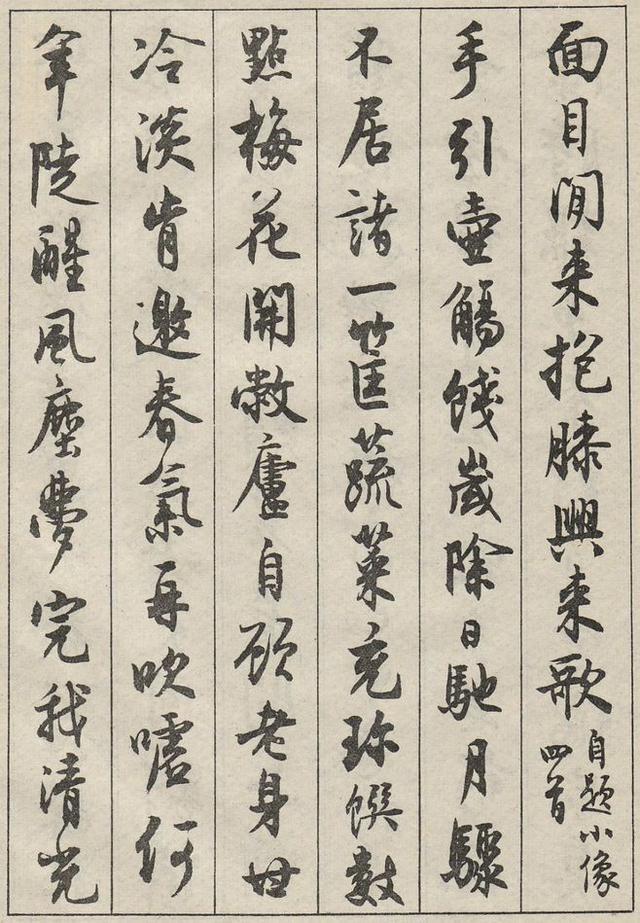 面目閒来抱膝興来歌 自題小像
四首
手引壺觴餞歲除日馳月驟
不居諸一筐蔬菜充珎饌數
點梅花開敝廬自顧老身甘
冷淡肯邀春氣再吹噓何
年陡醒風塵夢完我清光